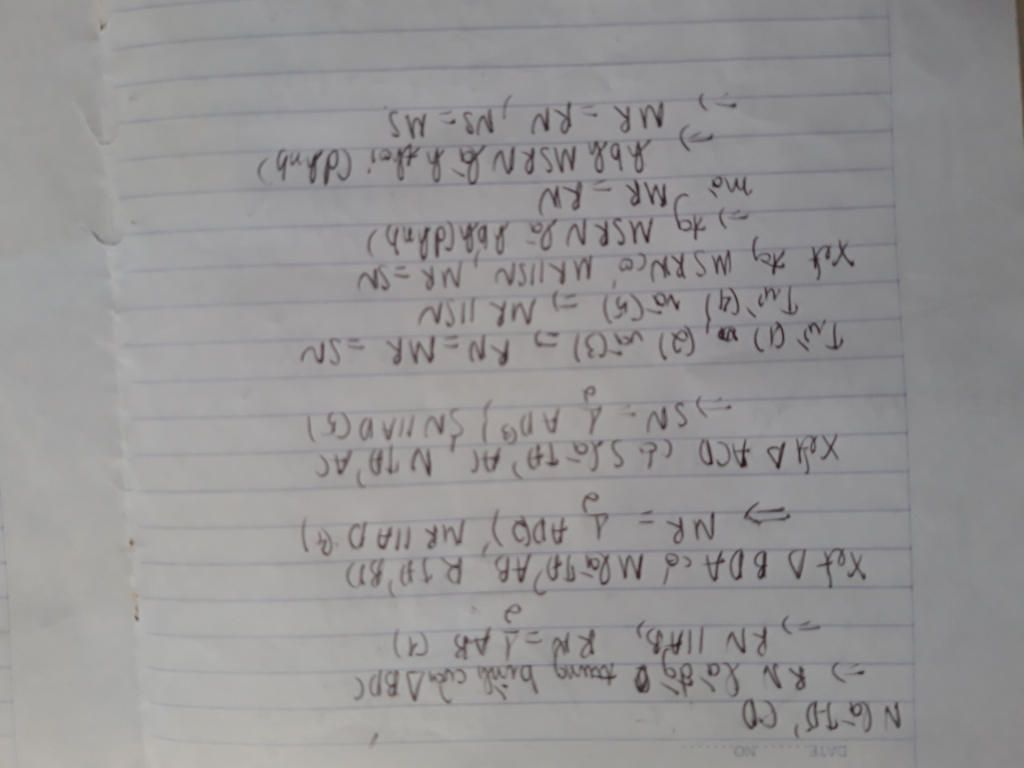 DATE NO
N là TĐ' CD
=> RN là đg trung bình của ΔBDC
=> RN // AB, RN = 1/2 AB (1)
Xét Δ BDA có M là TĐ' AB, R TĐ' BD
=> MR = 1/2 AD (2), MR // AD (4)
Xét Δ ACD có S là TĐ' AC, N TĐ' AC
=> SN = 1/2 AD (3), SN // AD (5)
Từ (1) (2) và (3) => RN = MR = SN
Từ (4) và (5) => MR // SN
Xét tg MSRN có MR // SN, MR = SN
=> tg MSRN là hbh (dhnb)
mà MR = RN
=> hbh MSRN là h.thoi (dhnb)
=> MR = RN, NS = MS